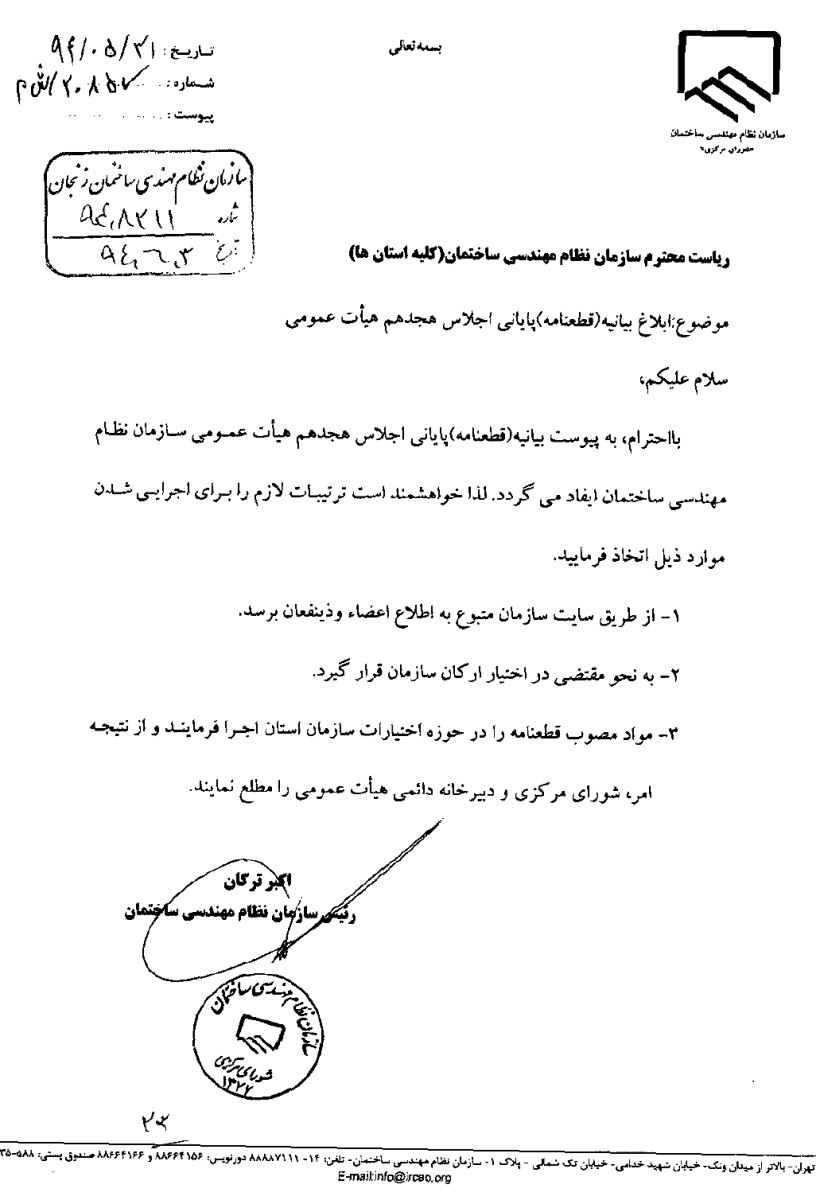 بسمه تعالی
سازمان نظام مهندسی ساختمان
«شورای مرکزی»
تاریخ: ۹۴/۰۵/۳۱
شماره: ۲۰۸۵۷/ش م
پیوست:
سازمان نظام مهندسی ساختمان زنجان
شماره ۹۴،۸۲۱۱
تاریخ ۹۴،۶،۳
ریاست محترم سازمان نظام مهندسی ساختمان(کلیه استان ها)
موضوع:ابلاغ بیانیه(قطعنامه)پایانی اجلاس هجدهم هیأت عمومی
سلام علیکم؛
بااحترام، به پیوست بیانیه(قطعنامه)پایانی اجلاس هجدهم هیأت عمومی سازمان نظام
مهندسی ساختمان ایفاد می گردد. لذا خواهشمند است ترتیبات لازم را برای اجرایی شدن
موارد ذیل اتخاذ فرمایید.
۱- از طریق سایت سازمان متبوع به اطلاع اعضاء وذینفعان برسد.
۲- به نحو مقتضی در اختیار ارکان سازمان قرار گیرد.
۳- مواد مصوب قطعنامه را در حوزه اختیارات سازمان استان اجرا فرمایند و از نتیجه
امر، شورای مرکزی و دبیرخانه دائمی هیأت عمومی را مطلع نمایند.
اکبر ترکان
رئیس سازمان نظام مهندسی ساختمان
سازمان نظام مهندسی ساختمان
شورای مرکزی
۱۳۷۷
۲۳
تهران- بالاتر از میدان ونک- خیابان شهید خدامی- خیابان تک شمالی - پلاک ۱- سازمان نظام مهندسی ساختمان- تلفن: ۱۴- ۸۸۸۷۷۱۱۱ دورنویس: ۸۸۶۶۴۱۵۶ و ۸۸۶۶۴۱۶۶ صندوق پستی: ۵۸۸-۳۵
E-mail:info@irceo.org